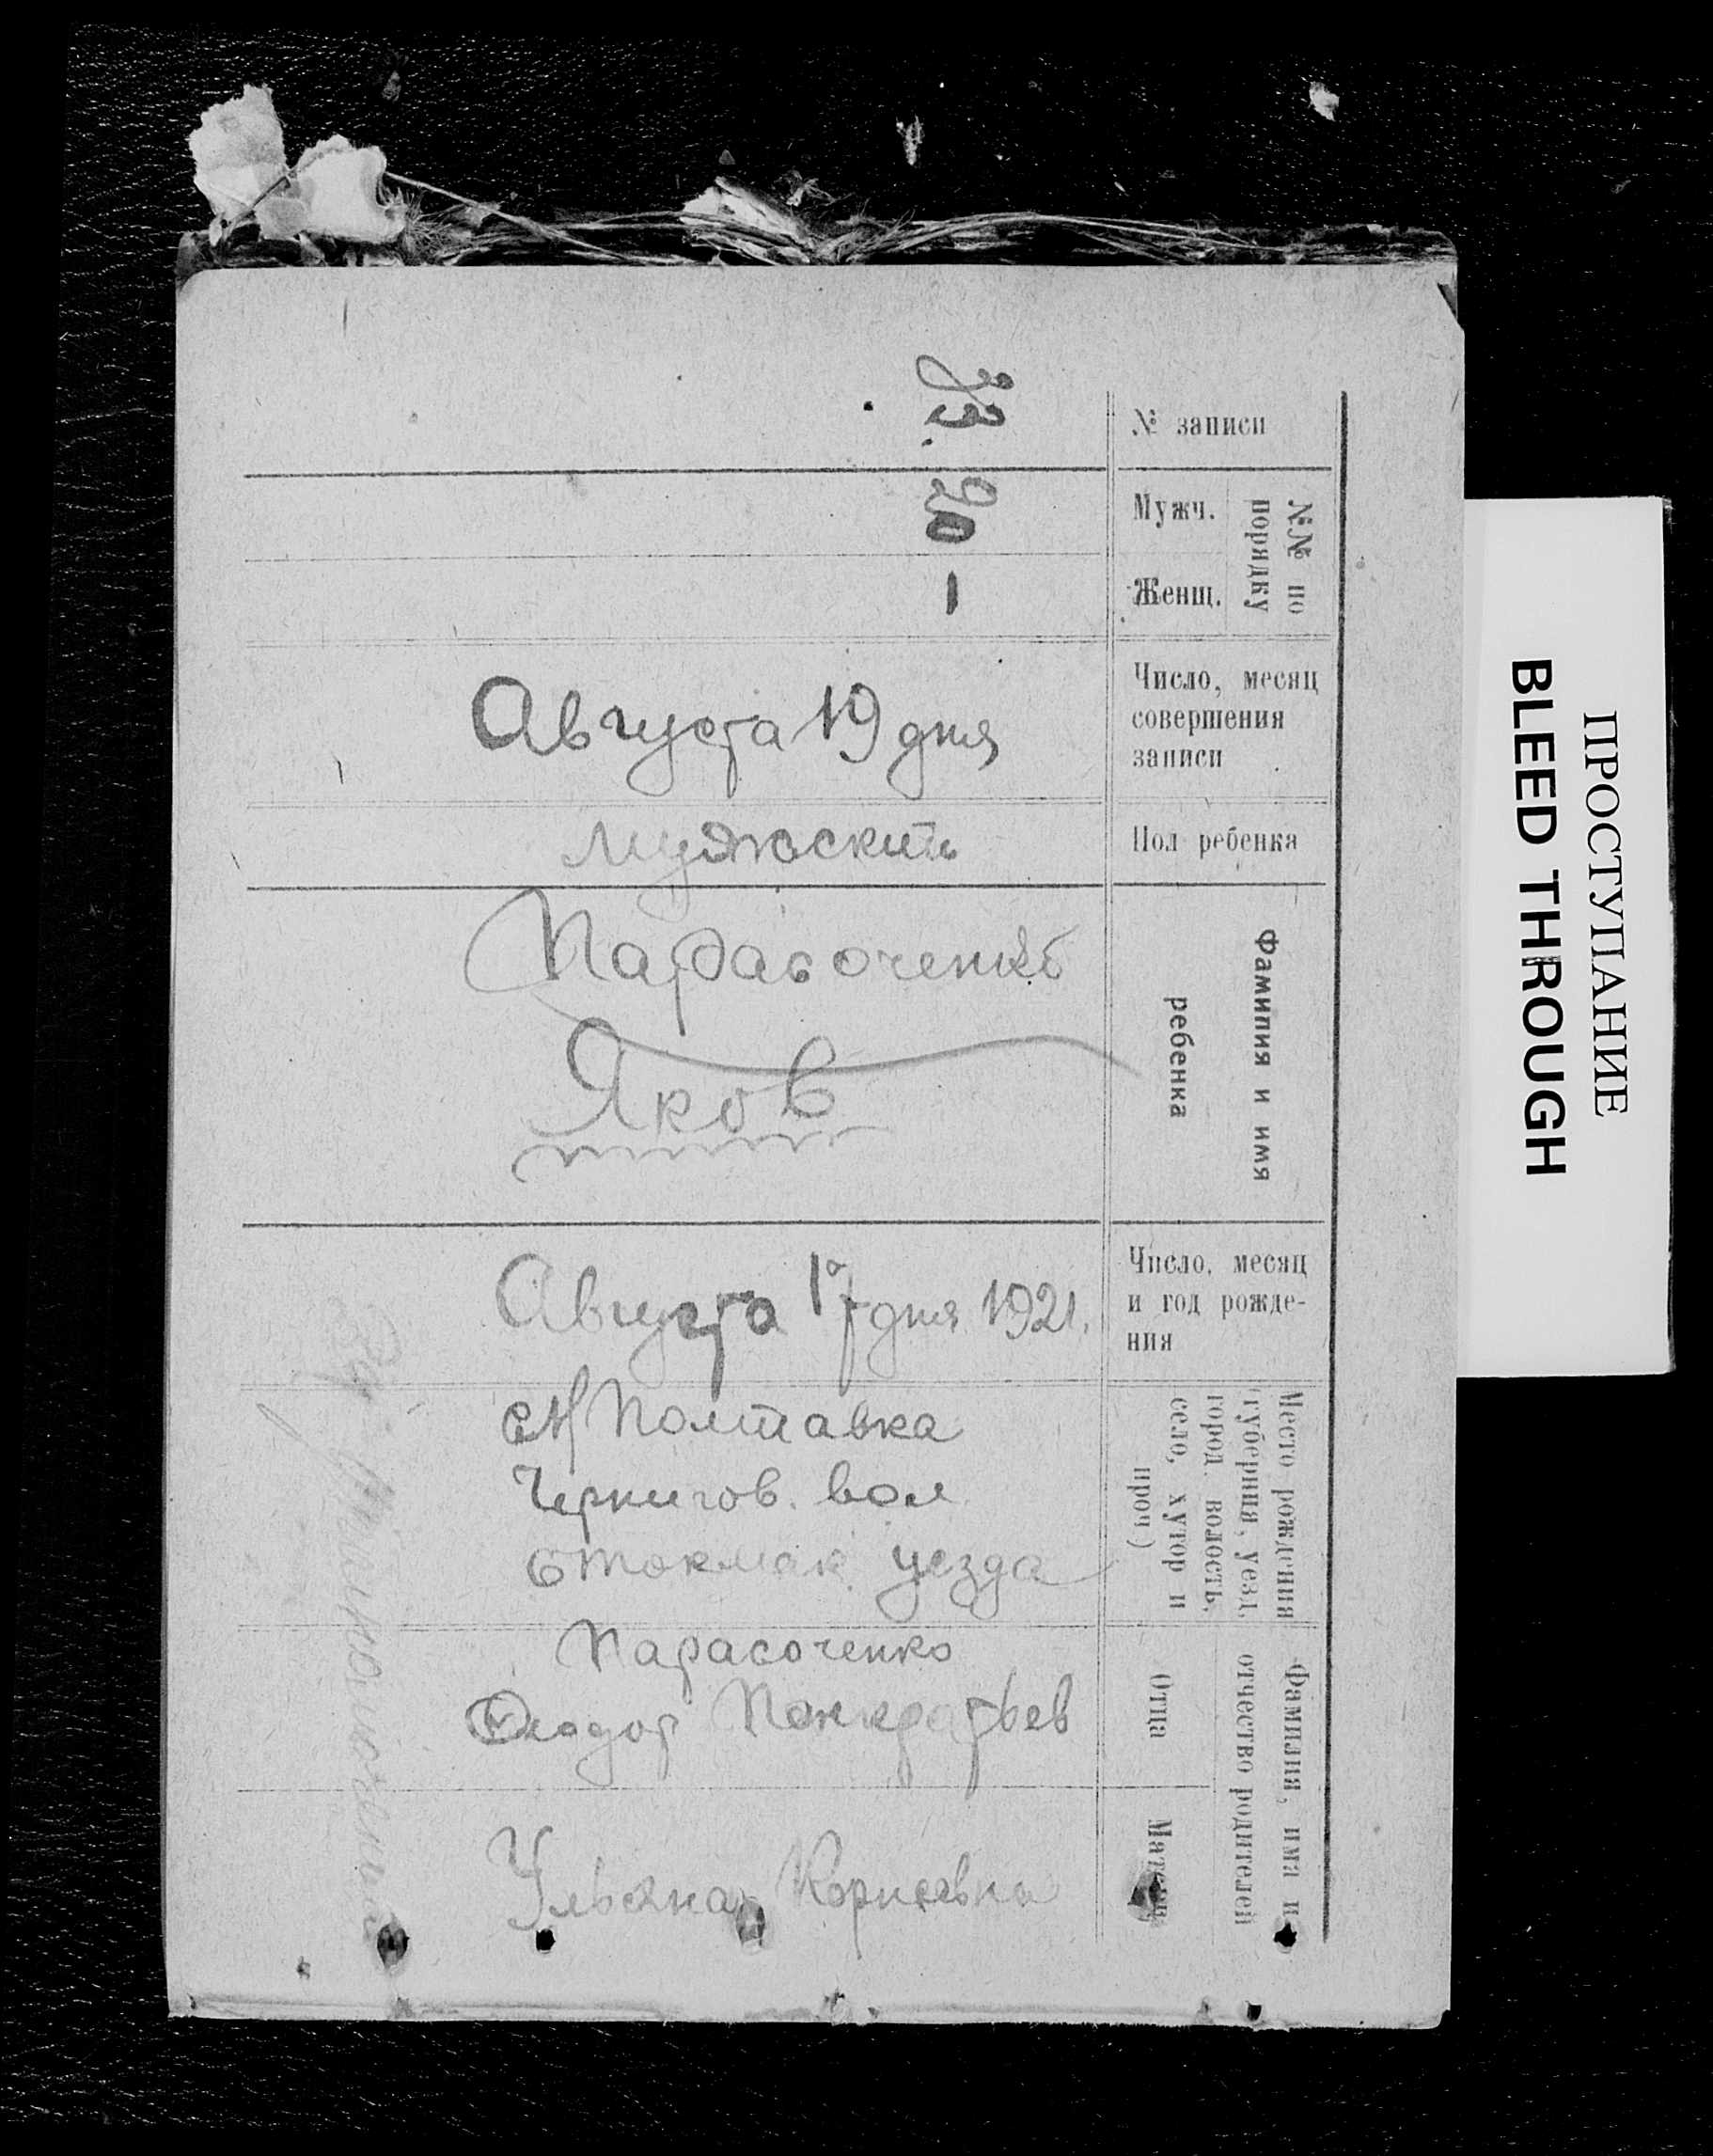 № записи
33.
№№ по
порядку
Мужч.
20
Женщ.
—
Число, месяц
совершения
записи
Августа 19 дня
Пол ребенка
мужской
Фамилия и имя
ребенка
Парасоченко
Яков
Число, месяц
и год рожде-
ния
Августа 17 дня 1921.
Место рождения
(губерния, уезд,
город. волость,
село, хутор и
проч)
Полтавка
Чернигов. вол
Бтокмак. уезда
Фамилия, имя и
отчество родителей
Отца
Парасоченко
Феодор Панкратьев
Матери
Ульяна
ПРОСТУПАНИЕ
BLEED THROUGH